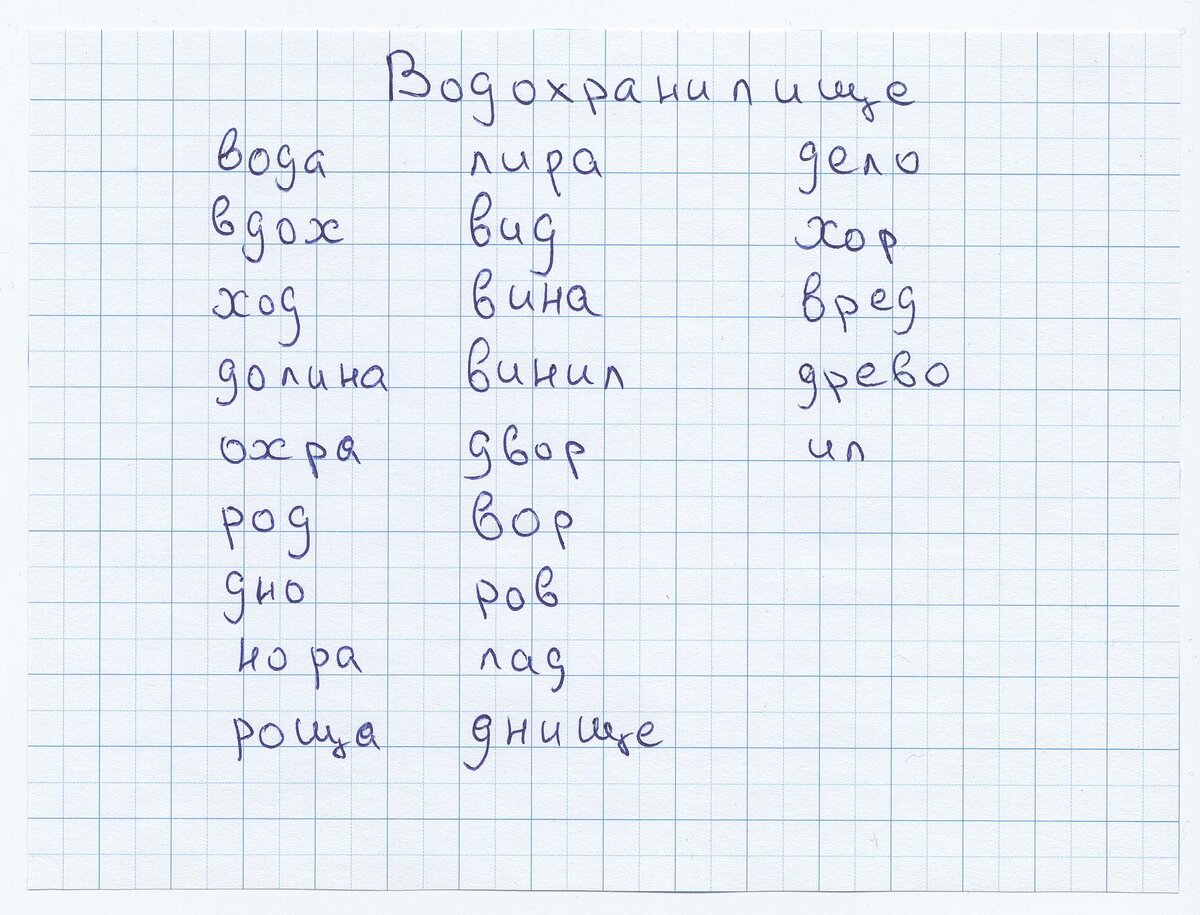 Водохранилище
вода лира дело
вдох вид хор
ход вина вред
долина винил древо
охра двор ил
род вор
дно ров
нора лад
роща днище